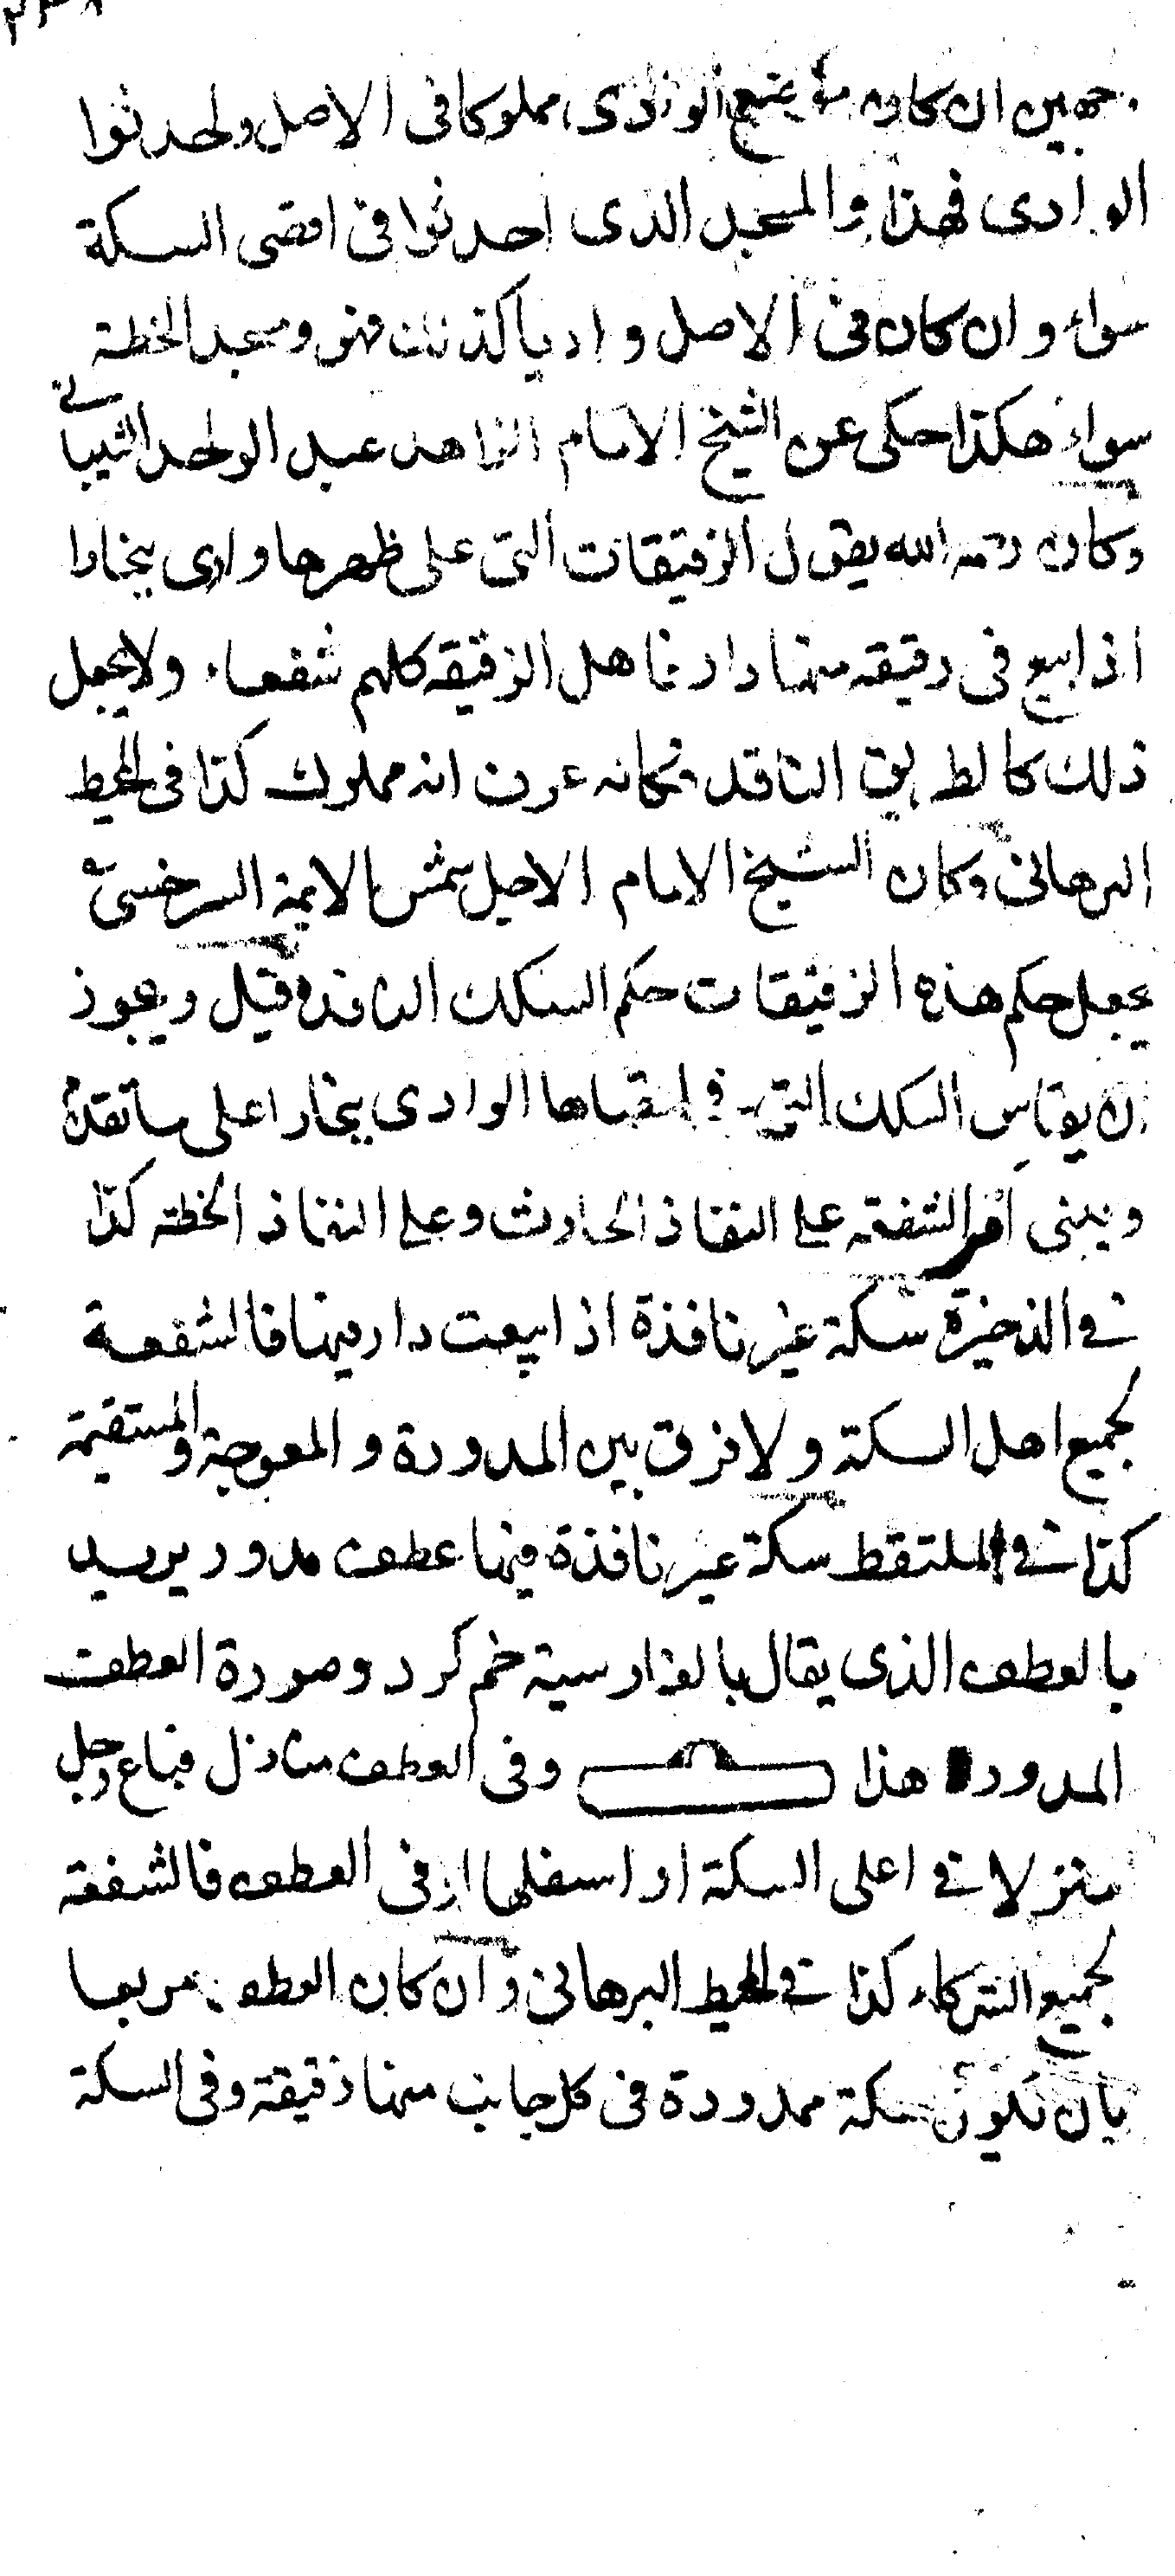 جهين ان كان موضع الوادى مملوكا فى الاصل واحدثوا
الوادى فهذا والمسجد الذى احدثوا فى اقصى السكة
سواء وان كان فى الاصل واديا كذلك فهو ومسجد الخطة
سواء هكذا حكى عن الشيخ الامام الزاهد عبد الواحد الشيبانى
وكان رحمه الله يقول الزقيقات التى على ظهرها وادى بخارا
اذا بيع فى زقيقه منها دار فاهل الزقيقه كلهم شفعاء ولا يجعل
ذلك كالطريق النافذ فكانه عرف انه مملوك كذا فى المحيط
البرهانى وكان الشيخ الامام الاجل شمس الائمة السرخسى
يجعل حكم هذه الزقيقات حكم السكك النافذه قيل ويجوز
ان يقاس السكك التى فى اقصاها الوادى ببخارا على ما تقدم
ويبنى امر الشفعه على النفاذ الحادث وعلى النفاذ الخطة كذا
فى الذخيرة سكة غير نافذة اذا بيعت دار فيها فالشفعة
لجميع اهل السكة ولا فرق بين المدورة والمعوجة والمستقيمة
كذا فى الملتقط سكة غير نافذة فيها عطف مدور يريد
بالعطف الذى يقال بالفارسية خم كرد وصورة العطف
المدور هذا وفى العطف منازل فباع رجل
منزلا فى اعلى السكة او اسفلها او فى العطف فالشفعة
لجميع الشركاء كذا فى المحيط البرهانى وان كان العطف مربعا
بان تكون سكة ممدودة فى كل جانب منها زقيقة وفى السكة